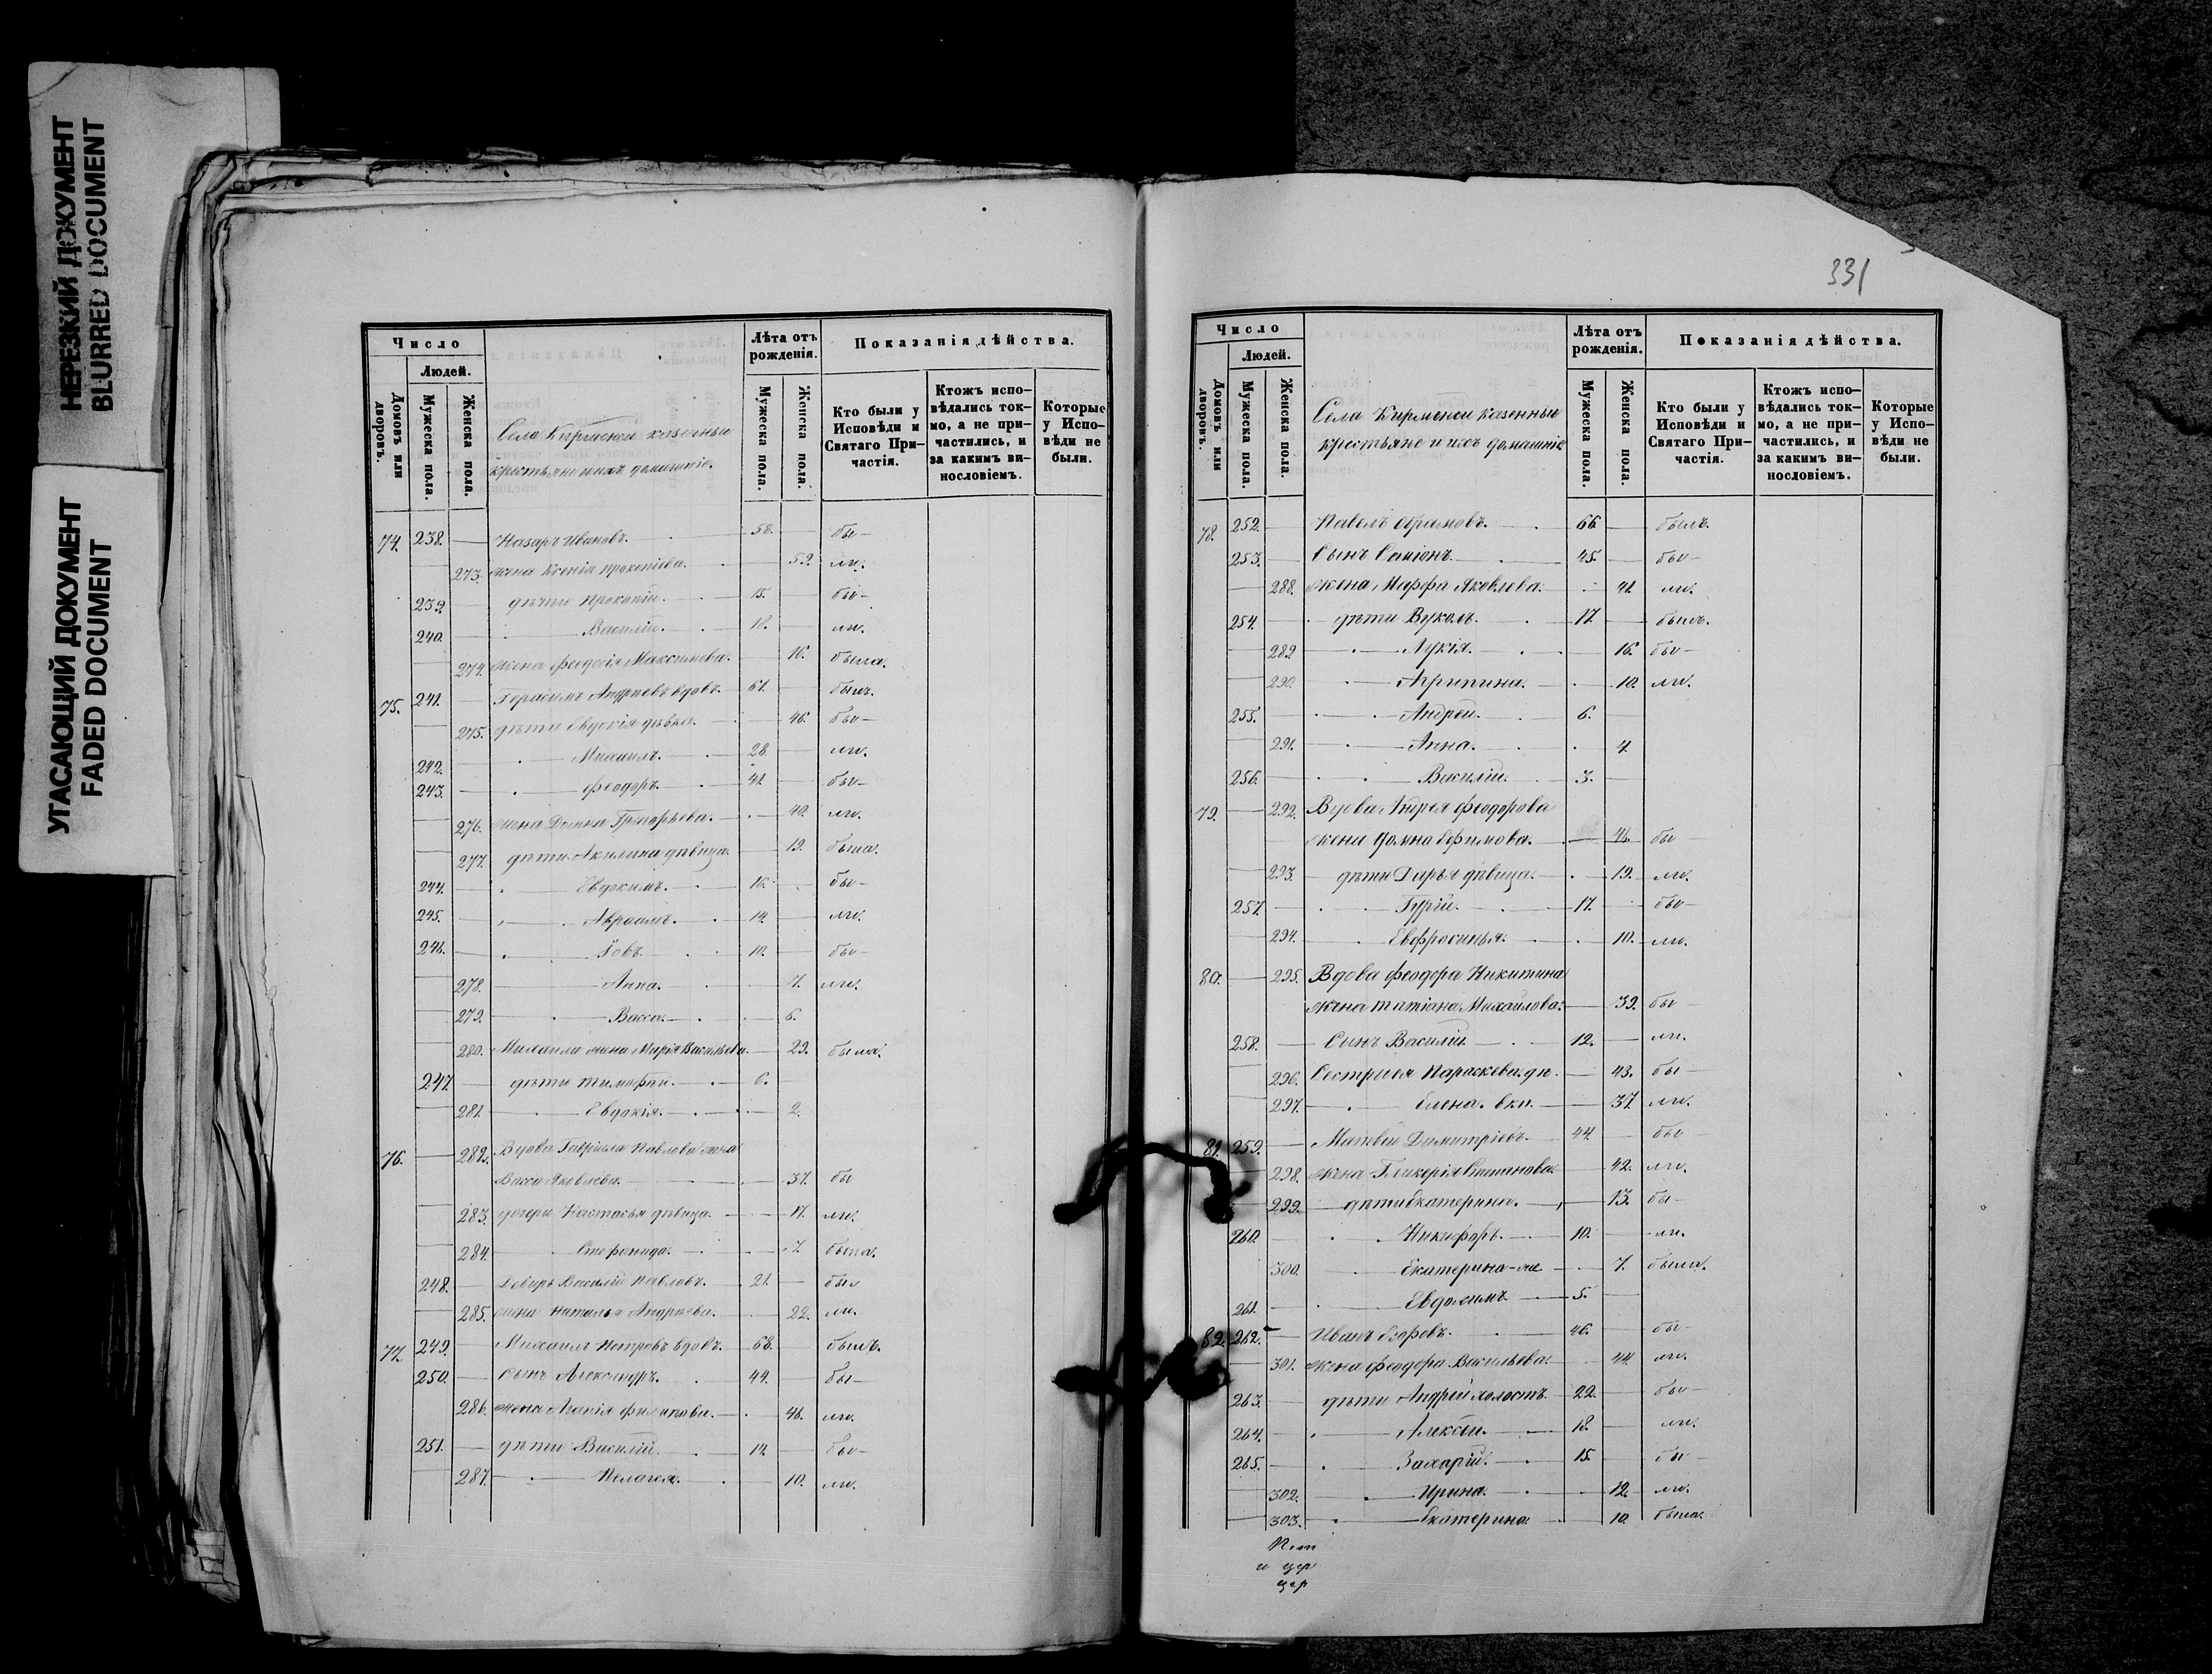 НЕРЕЗКИЙ ДОКУМЕНТ
BLURRED DOCUMENT
УГАСАЮЩИЙ ДОКУМЕНТ
FADED DOCUMENT
Число
Людей.
Домовъ или дворовъ.
Мужеска пола.
Женска пола.
Села Кирменки казенные
крестьяне и ихъ домашніе.
Лѣта отъ рожденія.
Мужеска пола.
Женска пола.
Показанія дѣйства.
Кто были у Исповѣди и Святаго Причастія.
Ктожъ исповѣдались токмо, а не причастились, и за какимъ винословіемъ.
Которые у Исповѣди не были.
74. 238. Назаръ Ивановъ. 58. бы-
273. жена Ксенія Прокопіева. 59. ли.
239. дѣти Прокопій. 15. бы-
240. Василій. 18. ли.
274. жена Феодосія Максимова. 16. была.
75. 241. Герасимъ Андреевъ вдовъ. 61. былъ.
275. дѣти Евдокія дѣвка. 46. бы-
242. Михаилъ. 28. ли.
243. Феодоръ. 41. бы-
276. жена Домна Григорьева. 40. ли.
277. дѣти Акилина дѣвица. 19. была.
244. Евдокимъ. 16. бы-
245. Авраамъ. 14. ли.
246. Іовъ. 10. бы-
278. Анна. 7. ли.
279. Васса. 6.
280. Михаила жена Марія Васильева. 29. была.
247. дѣти Тимофей. 6.
281. Евдокія. 2.
76. 282. Вдова Гавріила Павлова жена
Васса Яковлева. 37. бы
283. дочери Настасья дѣвица. 17. ли.
284. Стефанида. 7. была.
248. Деверь Василій Павловъ. 21. бы
285. жена Наталья Андреева. 22. ли.
77. 249. Михаилъ Петровъ вдовъ. 68. былъ.
250. Сынъ Александръ. 44. бы-
286. жена Агапія Филипова. 46. ли.
251. дѣти Василій. 14. бы-
287. Пелагея. 10. ли.
331
Число
Людей.
Домовъ или дворовъ.
Мужеска пола.
Женска пола.
Села Кирменки казенные
крестьяне и ихъ домашніе
Лѣта отъ рожденія.
Мужеска пола.
Женска пола.
Показанія дѣйства.
Кто были у Исповѣди и Святаго Причастія.
Ктожъ исповѣдались токмо, а не причастились, и за какимъ винословіемъ.
Которые у Исповѣди не были.
78. 252. Павелъ Абрамовъ. 66. былъ.
253. Сынъ Симіонъ. 45. бы-
288. жена Марфа Яковлева. 41. ли.
254. дѣти Вуколъ. 17. былъ.
289. Лукія. 16. бы-
290. Агрипина. 10. ли.
255. Андрей. 6.
291. Анна. 4.
256. Василій. 3.
79. 292. Вдова Андрея Феодорова
жена Домна Ефимова. 46. бы
293. дѣти Дарья дѣвица. 19. ли.
257. Гурій. 17. бы-
294. Евфросинья. 10. ли.
80. 295. Вдова Феодора Никитина
жена Татіана Михайлова. 39. бы
258. Сынъ Василій. 12. ли.
296. Сестры ея Параскева дѣ. 43. бы-
297. Елена. вка. 37. ли.
81. 259. Матвей Димитріевъ. 44. бы
298. жена Гликерія Степанова. 42. ли.
299. дѣти Екатерина. 13. бы-
260. Никифоръ. 10. ли.
300. Екатерина-же 7. была.
261. Евдокимъ 5.
82. 262. Иванъ Егоровъ. 46. бы-
301. жена Феодора Васильева. 44. ли.
263. дѣти Андрей холостъ. 22. бы-
264. Алексѣй. 18. ли.
265. Захарій. 15. бы
302. Ирина. 12. ли.
303. Екатерина 10. была.
и цер
цер